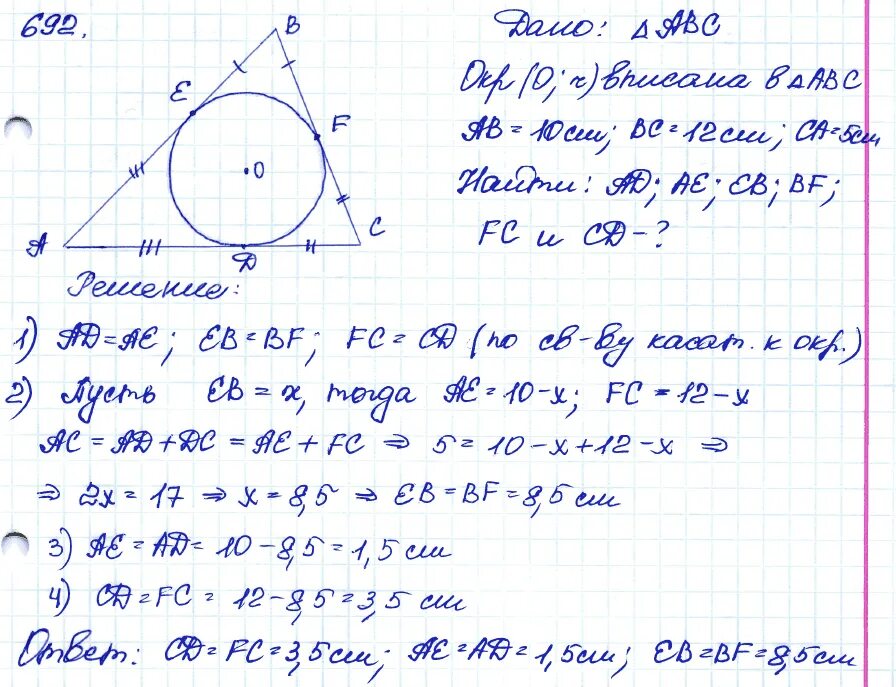 692.
B
E
F
O
A
C
D
Дано: △ABC
Окр(O; r) вписана в △ABC
AB = 10см; BC = 12см; CA = 5см
Найти: AD; AE; EB; BF;
FC и CD - ?
Решение:
1) AD = AE; EB = BF; FC = CD (по св-ву касат. к окр.)
2) Пусть EB = x, тогда AE = 10 - x; FC = 12 - x
AC = AD + DC = AE + FC ⇒ 5 = 10 - x + 12 - x ⇒
⇒ 2x = 17 ⇒ x = 8,5 ⇒ EB = BF = 8,5 см
3) AE = AD = 10 - 8,5 = 1,5 см
4) CD = FC = 12 - 8,5 = 3,5 см
Ответ: CD = FC = 3,5см; AE = AD = 1,5см; EB = BF = 8,5см